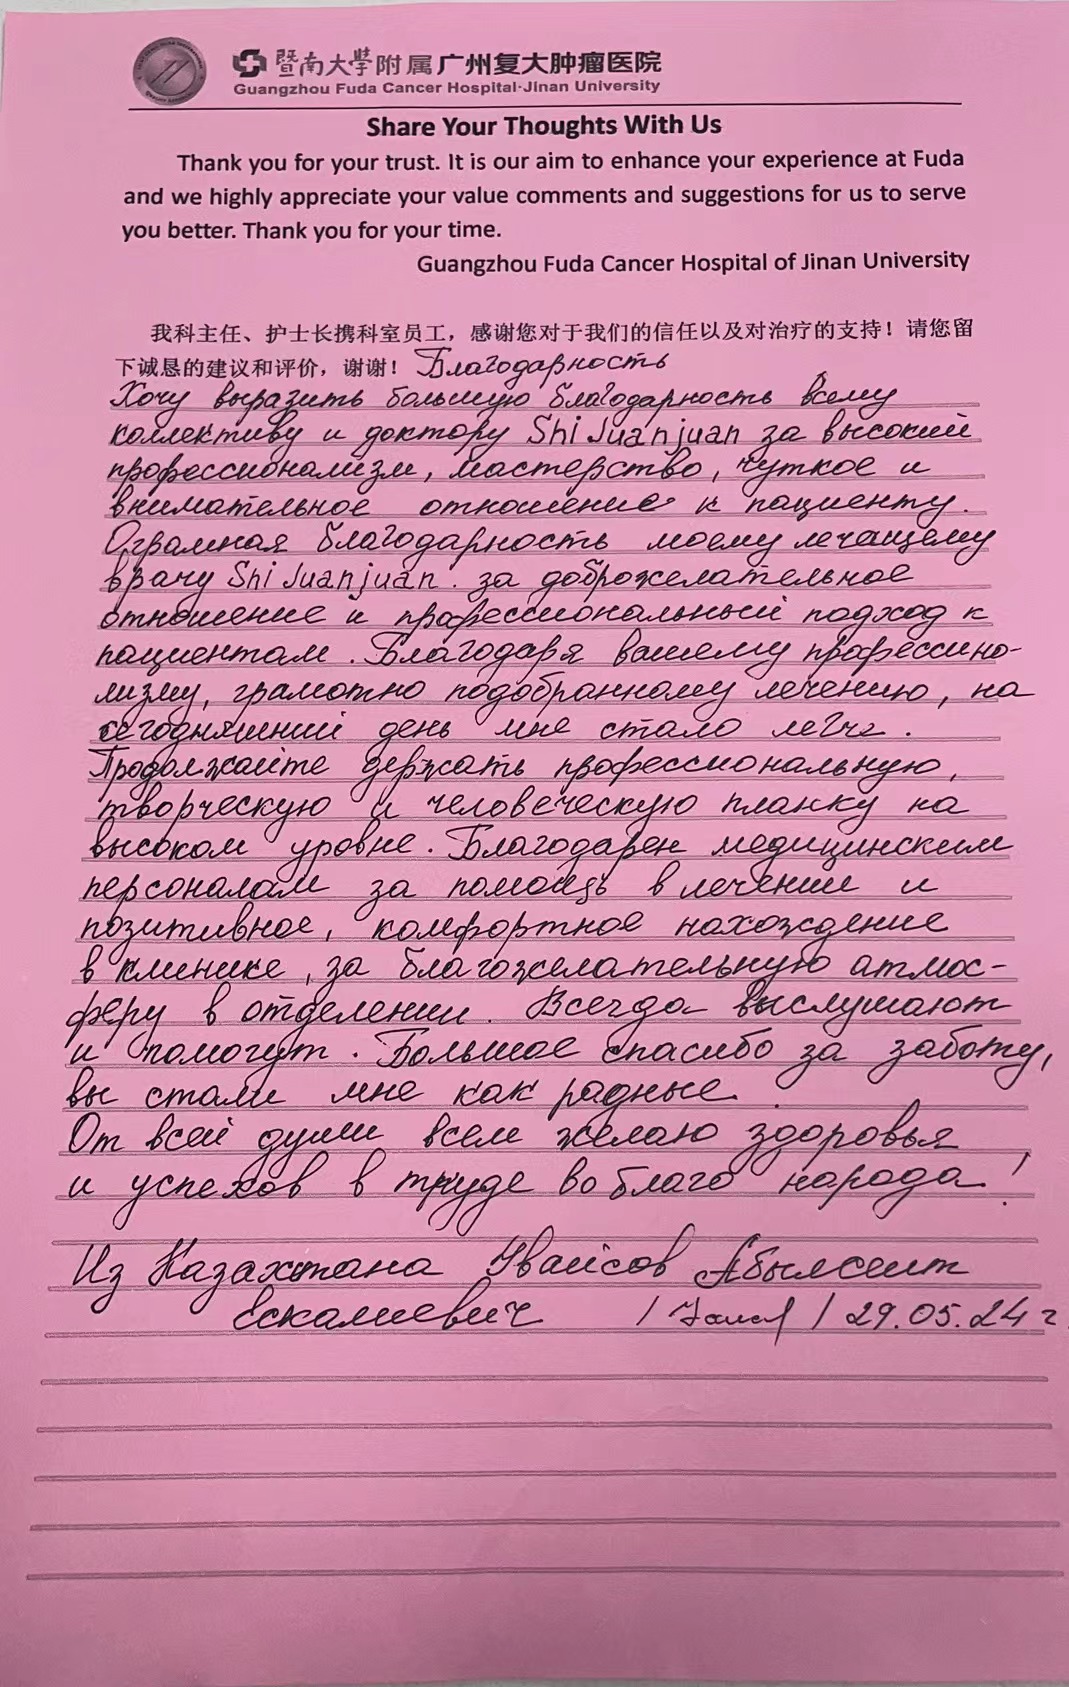 暨南大學附属广州复大肿瘤医院
Guangzhou Fuda Cancer Hospital·Jinan University
Share Your Thoughts With Us
Thank you for your trust. It is our aim to enhance your experience at Fuda
and we highly appreciate your value comments and suggestions for us to serve
you better. Thank you for your time.
Guangzhou Fuda Cancer Hospital of Jinan University
我科主任、护士长携科室员工，感谢您对于我们的信任以及对治疗的支持！请您留
下诚恳的建议和评价，谢谢！ Благодарность
Хочу выразить большую благодарность всему
коллективу и доктору Shi Juanjuan за высокий
профессионализм, мастерство, чуткое и
внимательное отношение к пациенту.
Огромная благодарность моему лечащему
врачу Shi Juanjuan. за доброжелательное
отношение и профессиональный подход к
пациентам. Благодаря вашему профессино-
лизму, грамотно подобранному лечению, на
сегодняшний день мне стало легче.
Продолжайте держать профессиональную,
творческую и человеческую планку на
высоком уровне. Благодарен медицинским
персоналам за помощь в лечении и
позитивное, комфортное нахождение
в клинике, за благожелательную атмос-
феру в отделении. Всегда выслушают
и помогут. Большое спасибо за заботу,
вы стали мне как радные.
От всей души всем желаю здоровья
и успехов в труде во благо народа!
Из Казахстана Увайсов Абылсеит
Ескалиевич / / 29.05.24 г